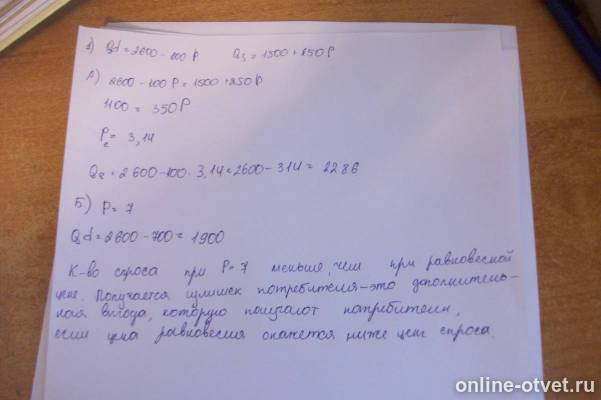 3) Qd = 2600 - 100 P Qs = 1500 + 250P
А) 2600 - 100 P = 1500 + 250 P
1100 = 350P
Pe = 3,14
Qe = 2600 - 100 · 3,14 = 2600 - 314 = 2286
Б) P = 7
Qd = 2600 - 700 = 1900
К-во спроса при P = 7 меньше, чем при равновесной
цене. Получается излишек потребителя - это дополнитель-
ная выгода, которую получают потребители,
если цена равновесия окажется ниже цен спроса.
online-otvet.ru